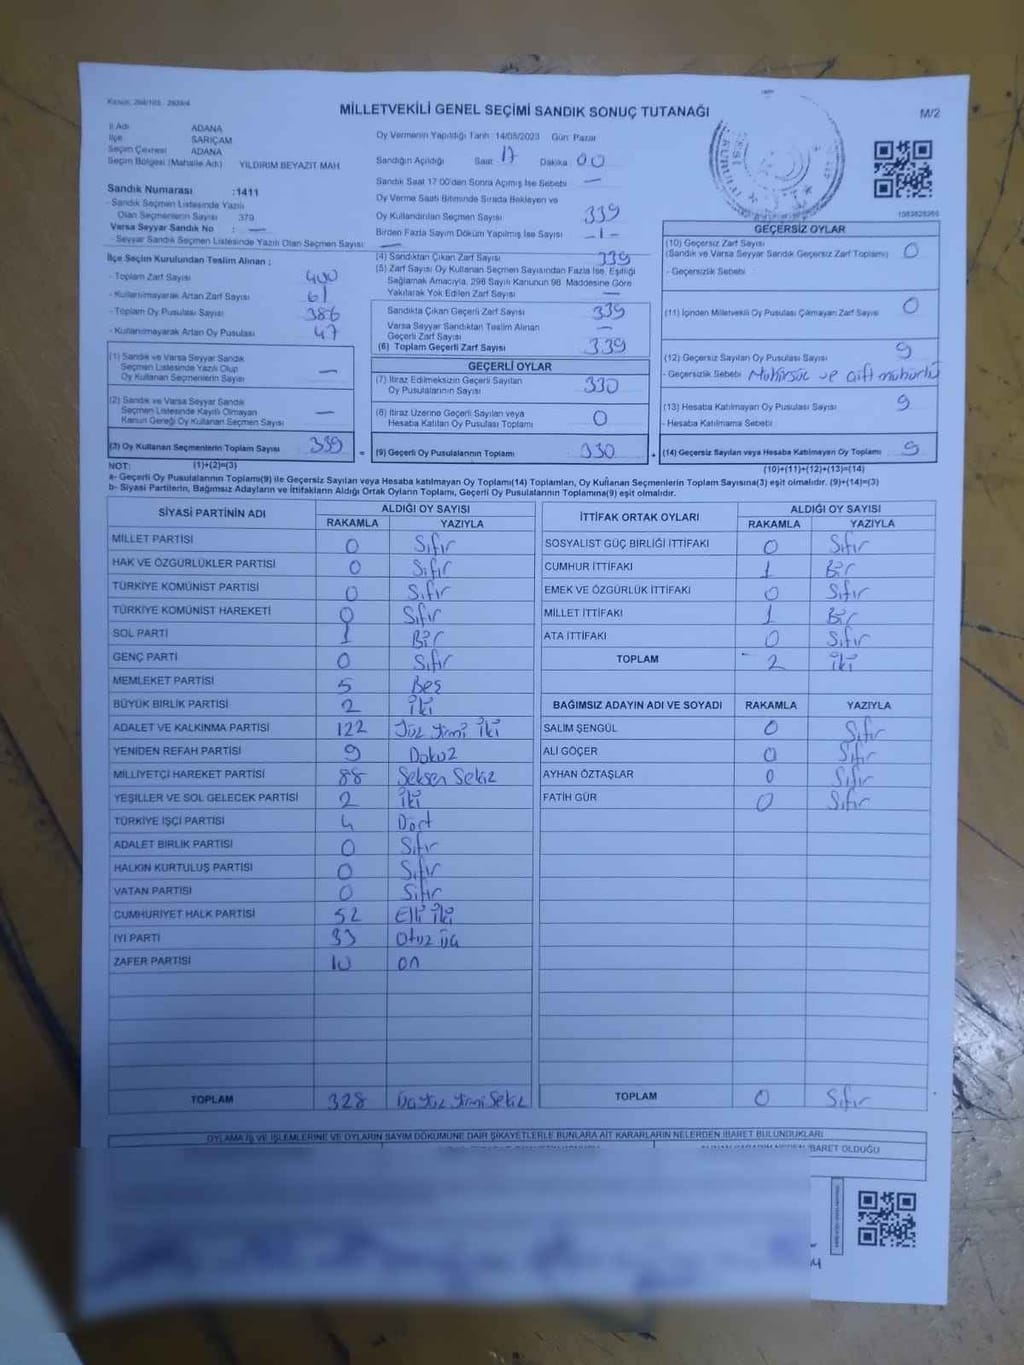 MİLLETVEKİLİ GENEL SEÇİMİ SANDIK SONUÇ TUTANAĞI
M/2
İl Adı ADANA
İlçe SARIÇAM
Seçim Çevresi ADANA
Seçim Bölgesi (Mahalle Adı) YILDIRIM BEYAZIT MAH
Sandık Numarası :1411
- Sandık Seçmen Listesinde Yazılı
Olan Seçmenlerin Sayısı 379
Varsa Seyyar Sandık No : —
- Seyyar Sandık Seçmen Listesinde Yazılı Olan Seçmen Sayısı —
İlçe Seçim Kurulundan Teslim Alınan :
- Toplam Zarf Sayısı 400
- Kullanılmayarak Artan Zarf Sayısı 61
- Toplam Oy Pusulası Sayısı 386
- Kullanılmayarak Artan Oy Pusulası 47
(1) Sandık ve Varsa Seyyar Sandık
Seçmen Listesinde Yazılı Olup
Oy Kullanan Seçmenlerin Sayısı —
(2) Sandık ve Varsa Seyyar Sandık
Seçmen Listesinde Kayıtlı Olmayan
Kanun Gereği Oy Kullanan Seçmen Sayısı —
(3) Oy Kullanan Seçmenlerin Toplam Sayısı 339
Oy Vermenin Yapıldığı Tarih :14/05/2023 Gün: Pazar
Sandığın Açıldığı Saat 17 Dakika 00
Sandık Saat 17:00'den Sonra Açılmış İse Sebebi —
Oy Verme Saati Bitiminde Sırada Bekleyen ve
Oy Kullandırılan Seçmen Sayısı 339
Birden Fazla Sayım Döküm Yapılmış İse Sayısı -1-
(4) Sandıktan Çıkan Zarf Sayısı 339
(5) Zarf Sayısı Oy Kullanan Seçmen Sayısından Fazla İse, Eşitliği
Sağlamak Amacıyla, 298 Sayılı Kanunun 98. Maddesine Göre
Yakılarak Yok Edilen Zarf Sayısı —
Sandıkta Çıkan Geçerli Zarf Sayısı 339
Varsa Seyyar Sandıktan Teslim Alınan
Geçerli Zarf Sayısı —
(6) Toplam Geçerli Zarf Sayısı 339
GEÇERLİ OYLAR
(7) İtiraz Edilmeksizin Geçerli Sayılan
Oy Pusulalarının Sayısı 330
(8) İtiraz Üzerine Geçerli Sayılan veya
Hesaba Katılan Oy Pusulası Toplamı 0
= (9) Geçerli Oy Pusulalarının Toplamı 330
1083828366
GEÇERSİZ OYLAR
(10) Geçersiz Zarf Sayısı
(Sandık ve Varsa Seyyar Sandık Geçersiz Zarf Toplamı) 0
- Geçersizlik Sebebi
(11) İçinden Milletvekili Oy Pusulası Çıkmayan Zarf Sayısı 0
(12) Geçersiz Sayılan Oy Pusulası Sayısı 9
- Geçersizlik Sebebi Mühürsüz ve Çift mühürlü
(13) Hesaba Katılmayan Oy Pusulası Sayısı 9
- Hesaba Katılmama Sebebi
+ (14) Geçersiz Sayılan veya Hesaba Katılmayan Oy Toplamı 9
NOT: (1)+(2)=(3) (10)+(11)+(12)+(13)=(14)
a- Geçerli Oy Pusulalarının Toplamı(9) ile Geçersiz Sayılan veya Hesaba katılmayan Oy Toplamı(14) Toplamları, Oy Kullanan Seçmenlerin Toplam Sayısına(3) eşit olmalıdır. (9)+(14)=(3)
b- Siyasi Partilerin, Bağımsız Adayların ve İttifakların Aldığı Ortak Oyların Toplamı, Geçerli Oy Pusulalarının Toplamına(9) eşit olmalıdır.
SİYASİ PARTİNİN ADI ALDIĞI OY SAYISI
RAKAMLA YAZIYLA
MİLLET PARTİSİ 0 Sıfır
HAK VE ÖZGÜRLÜKLER PARTİSİ 0 Sıfır
TÜRKİYE KOMÜNİST PARTİSİ 0 Sıfır
TÜRKİYE KOMÜNİST HAREKETİ 0 Sıfır
SOL PARTİ 1 Bir
GENÇ PARTİ 0 Sıfır
MEMLEKET PARTİSİ 5 Beş
BÜYÜK BİRLİK PARTİSİ 2 İki
ADALET VE KALKINMA PARTİSİ 122 Yüz yirmi iki
YENİDEN REFAH PARTİSİ 9 Dokuz
MİLLİYETÇİ HAREKET PARTİSİ 88 Seksen Sekiz
YEŞİLLER VE SOL GELECEK PARTİSİ 2 İki
TÜRKİYE İŞÇİ PARTİSİ 4 Dört
ADALET BİRLİK PARTİSİ 0 Sıfır
HALKIN KURTULUŞ PARTİSİ 0 Sıfır
VATAN PARTİSİ 0 Sıfır
CUMHURİYET HALK PARTİSİ 52 Elli iki
İYİ PARTİ 33 Otuz üç
ZAFER PARTİSİ 10 on
TOPLAM 328 Üçyüz yirmi Sekiz
İTTİFAK ORTAK OYLARI ALDIĞI OY SAYISI
RAKAMLA YAZIYLA
SOSYALİST GÜÇ BİRLİĞİ İTTİFAKI 0 Sıfır
CUMHUR İTTİFAKI 1 Bir
EMEK VE ÖZGÜRLÜK İTTİFAKI 0 Sıfır
MİLLET İTTİFAKI 1 Bir
ATA İTTİFAKI 0 Sıfır
TOPLAM 2 İki
BAĞIMSIZ ADAYIN ADI VE SOYADI RAKAMLA YAZIYLA
SALİM ŞENGÜL 0 Sıfır
ALİ GÖÇER 0 Sıfır
AYHAN ÖZTAŞLAR 0 Sıfır
FATİH GÜR 0 Sıfır
TOPLAM 0 Sıfır
OYLAMA İŞ VE İŞLEMLERİNE VE OYLARIN SAYIM DÖKÜMÜNE DAİR ŞİKAYETLERLE BUNLARA AİT KARARLARIN NELERDEN İBARET BULUNDUKLARI
İBARET OLDUĞU